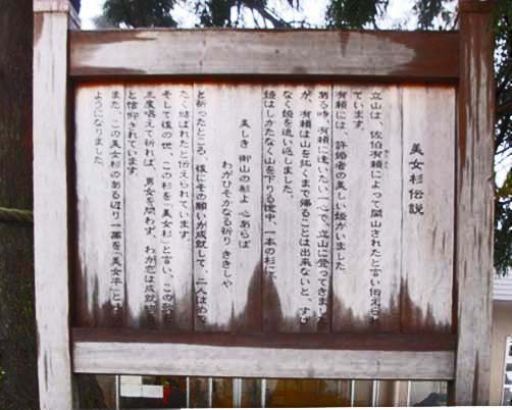 美女杉伝説
立山は、佐伯有頼によって開山されたと言い伝えられ
ています。
有頼には、許婚者の美しい姫がいました
ある時、有頼に逢いたい一心で、立山に登ってきました
が、有頼は山を拓くまで帰ることは出来ないと、すげ
なく姫を追い返しました。
姫はしかたなく山を下りる途中、一本の杉に
美しき 御山の杉よ 心あらば
わがひそかなる祈り ききしや
と祈ったところ、後にその願いが成就して、二人はめで
たく結ばれたと伝えられています。
そして後の世、この杉を「美女杉」と言い、この
三度唱えて祈れば、男女を問わず、わが恋は成就
と信仰されています。
また、この美女杉のある辺り一帯を「美女平」と
ようになりました。